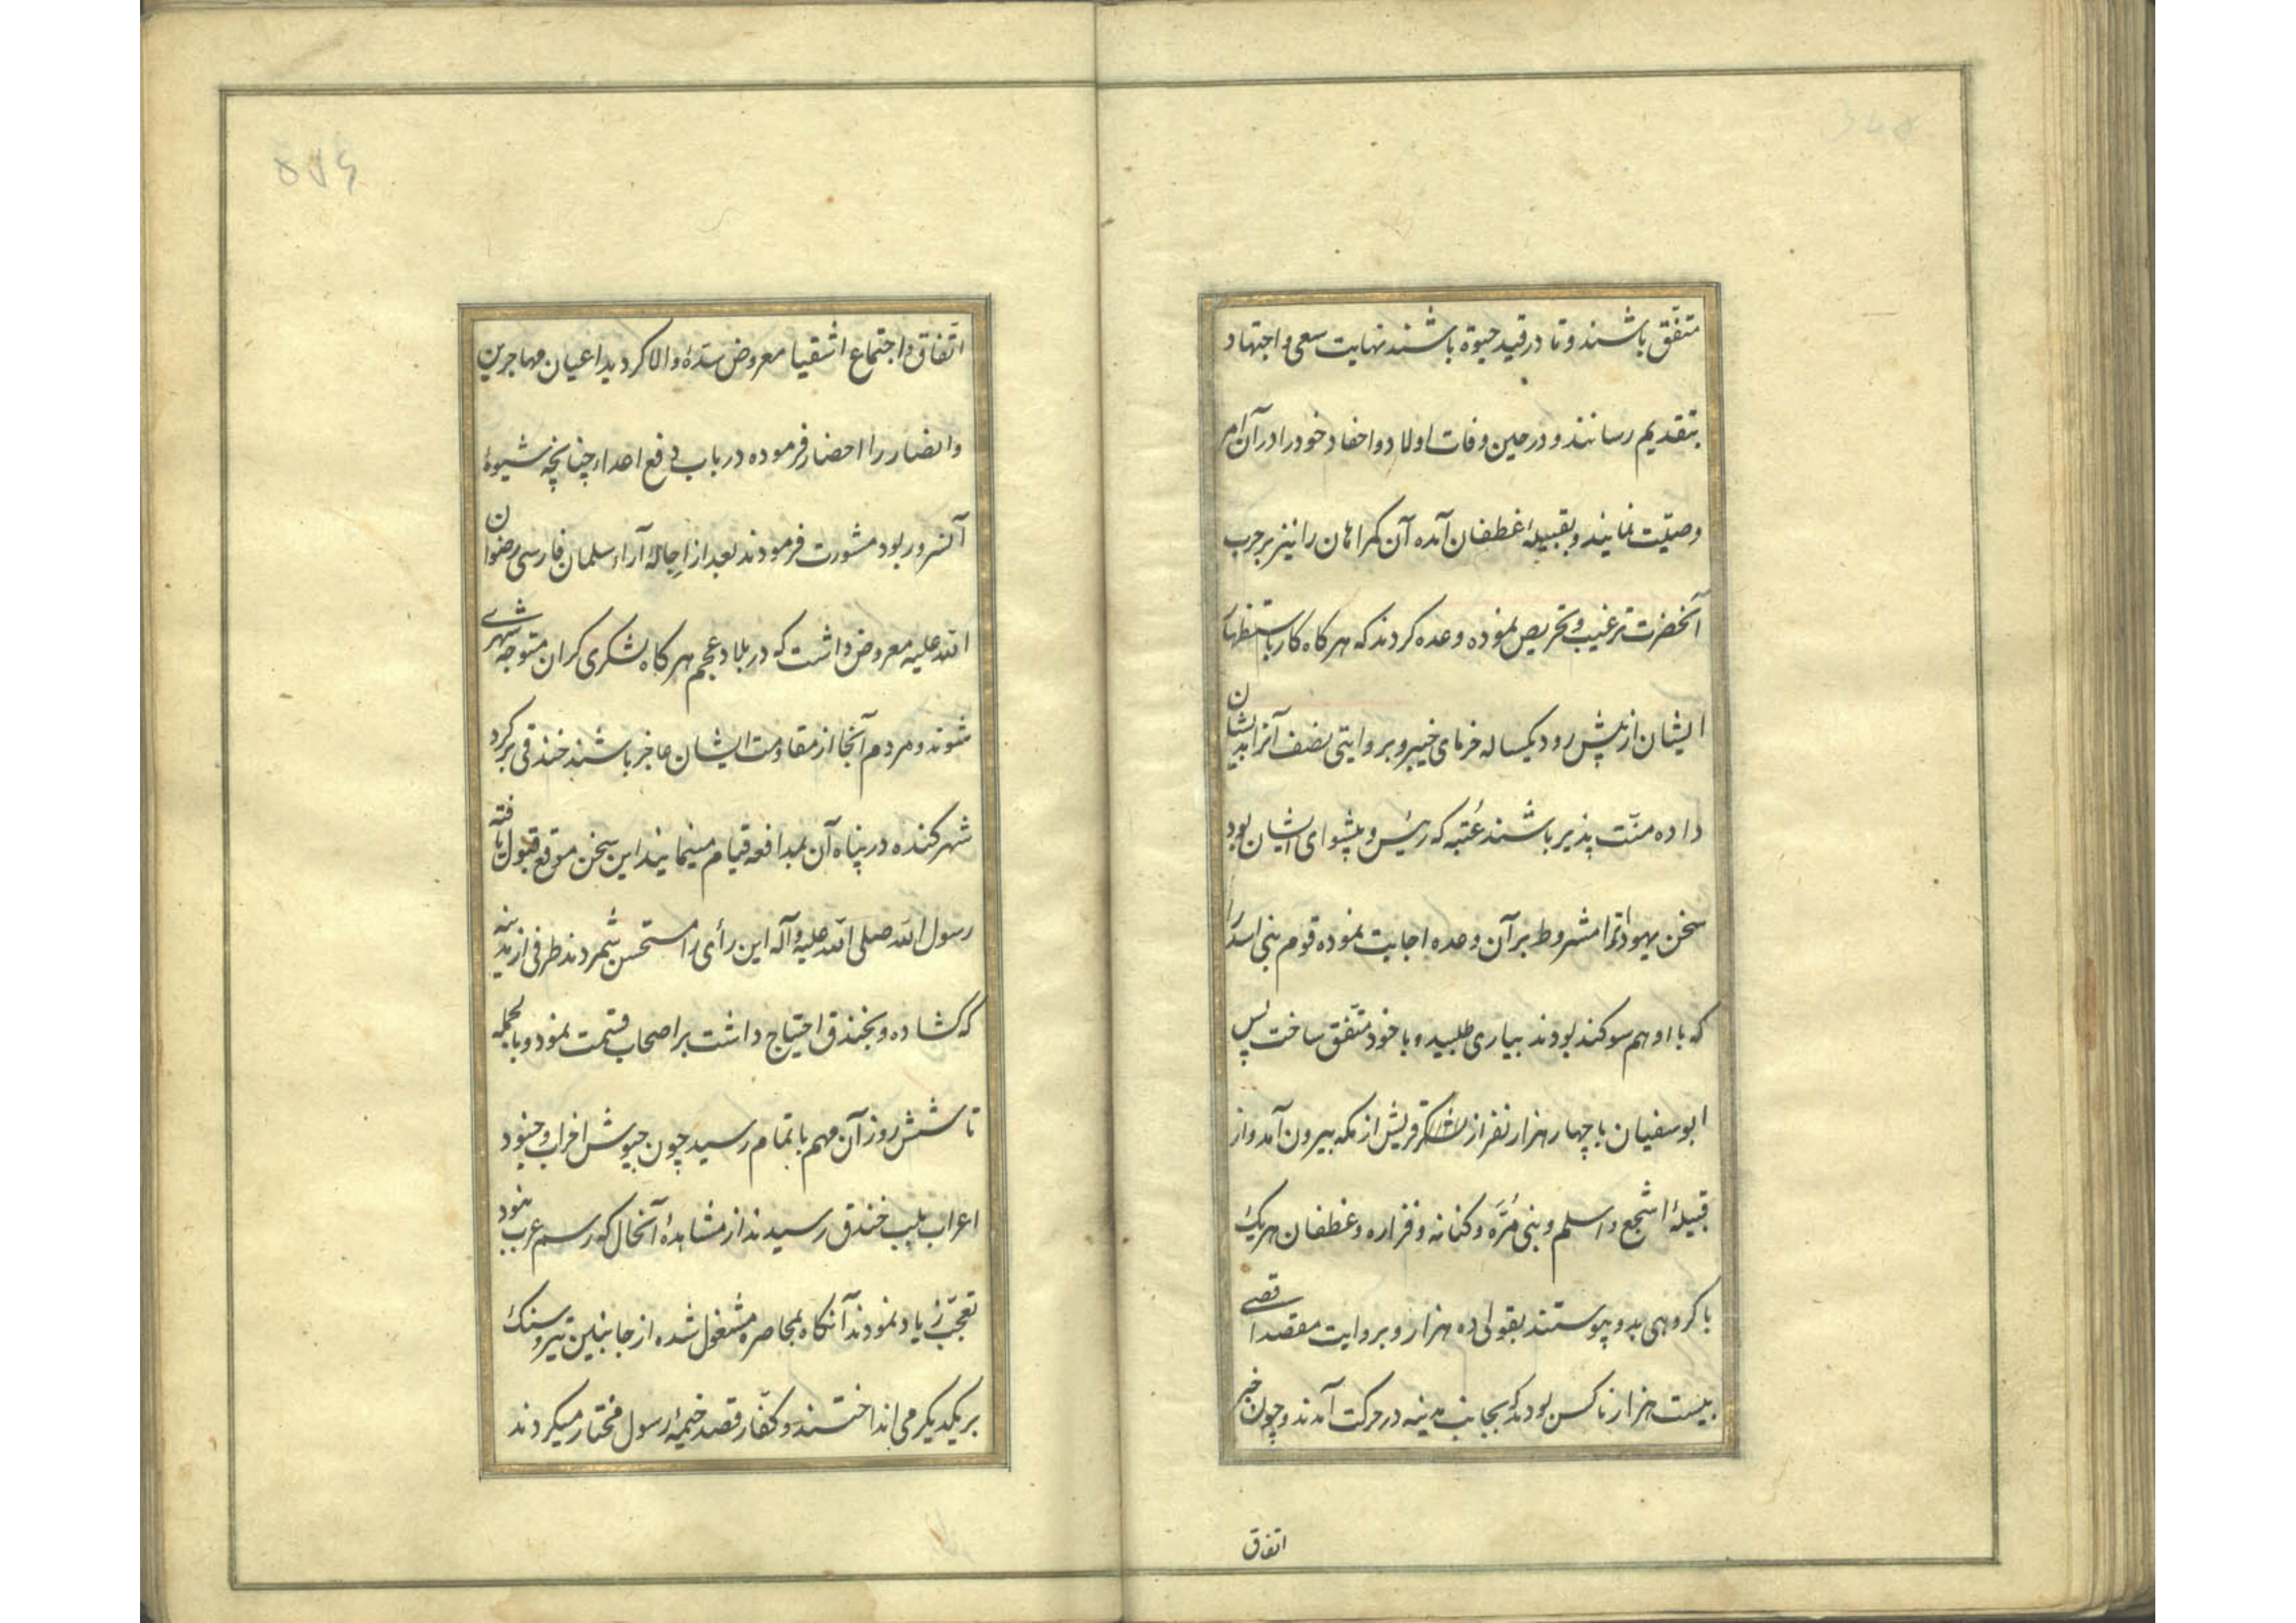 متفق باشند و تا در قید حیوة باشند نهایت سعی و اجتهاد
بتقدیم رسانند و در حین وفات اولاد و احفاد خود را در آن امر
وصیّت نمایند و بقبیلهٔ غطفان آمده آن گمراهان را نیز بر حرب
آنحضرت ترغیب و تحریص نموده وعده کردند که هرکاه کار باستظهار
ایشان از پیش رود یکساله خرمای خیبر و بروایتی نصف آنرا بدیشان
داده منّت پذیر باشند عُتبه که رئیس و پیشوای ایشان بود
سخن یهود را مشروط بر آن وعده اجابت نموده قوم بنی اسد را
که با او هم سوکند بودند بیاری طلبید و با خود متّفق ساخت پس
ابوسفیان با چهار هزار نفر از لشکر قریش از مکه بیرون آمد و از
قبیلهٔ اشجع و اسلم و بنی مُرَّه و کنانه و فزاره و غطفان هریک
با کروهی بدو پیوستند بقولی ده هزار و بروایت مقصد اقصی
بیست هزار ناکس بودند که بجانب مدینه در حرکت آمدند و چون خبر
اتفاق
اتّفاق و اجتماع اشقیا معروض سدّهٔ والا کردید اعیان مهاجرین
و انصار را احضار فرموده در باب دفع اعداء چنانچه شیوهٔ
آنسرور بود مشورت فرمودند بعد از اِجالهٔ آراء سلمان فارسی رضوان
الله علیه معروض داشت که در بلاد عجم هرکاه لشکری کران متوجه شهری
شوند و مردم آنجا از مقاومت ایشان عاجز باشند خندقی بر کرد
شهر کنده در پناه آن بمدافعه قیام مینمایند این سخن موقع قبول یافته
رسول الله صلی الله علیه و آله این رأی را مستحسن شمردند طرفی از مدینه
که کشاده و بخندق احتیاج داشت بر اصحاب قسمت نمود و بالجمله
تا شش روز آن مهم باتمام رسید چون جیوش احزاب و جنود
اعراب بلب خندق رسیدند از مشاهدهٔ آنحال که رسم عرب نبود
تعجّب زیاد نمودند آنکاه بمحاصره مشغول شده از جانبین تیر و سنک
بر یکدیکر می انداختند و کفّار قصد خیمهٔ رسول مختار میکردند